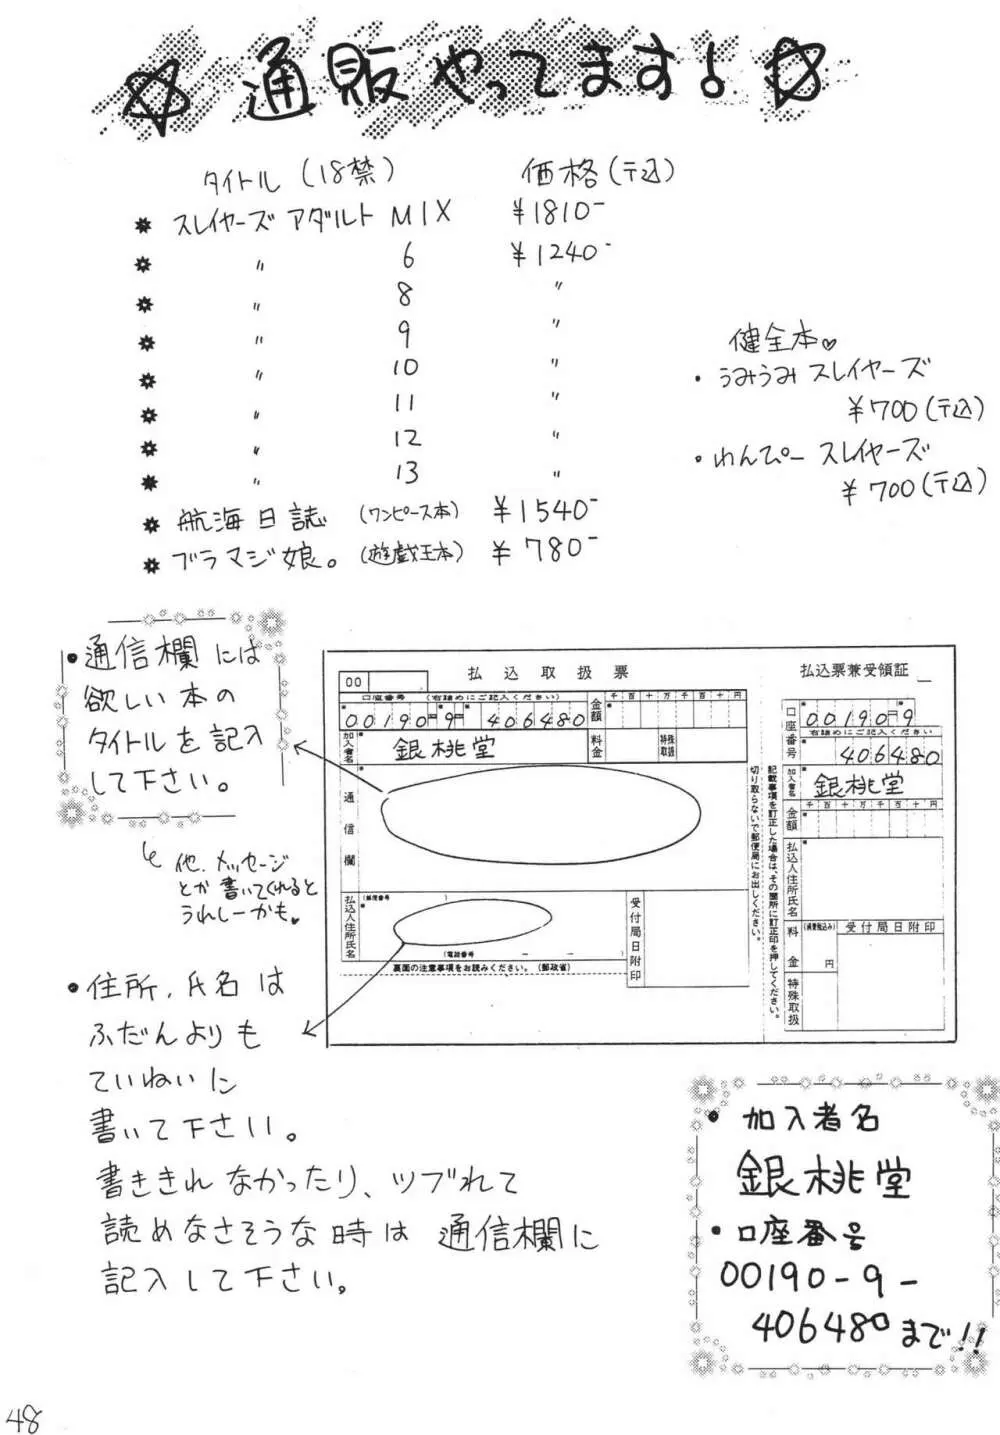 ☆通販やってます♪☆
タイトル(18禁) 価格(〒込)
スレイヤーズ アダルト MIX ¥1810-
〃 6 ¥1240-
〃 8 〃
〃 9 〃
〃 10 〃
〃 11 〃
〃 12 〃
〃 13 〃
航海日誌 (ワンピース本) ¥1540-
ブラマジ娘。(遊戯王本) ¥780-
健全本♥
・うみうみ スレイヤーズ
¥700(〒込)
・わんぴー スレイヤーズ
¥700(〒込)
・通信欄には
欲しい本の
タイトルを記入
して下さい。
他、メッセージ
とか書いてくれると
うれしーかも♥
・住所、氏名は
ふだんよりも
ていねいに
書いて下さい。
書ききれなかったり、ツブれて
読めなさそうな時は 通信欄に
記入して下さい。
00 払込取扱票
口座番号 (右詰めにご記入ください)
00190 9 406480
金額 千百十万千百十円
加入者名 銀桃堂
料金 特殊取扱
通信欄
払込人住所氏名 (郵便番号 )
(電話番号 - - )
受付局日附印
裏面の注意事項をお読みください。(郵政省)
切り取らないで郵便局にお出しください。
記載事項を訂正した場合は、その箇所に訂正印を押してください。
払込票兼受領証
口座番号 00190 9
右詰めにご記入ください
406480
加入者名 銀桃堂
金額 千百十万千百十円
払込人住所氏名
料金 (消費税込み) 円
受付局日附印
特殊取扱
・加入者名
銀桃堂
・口座番号
00190-9-
406480まで!!
48